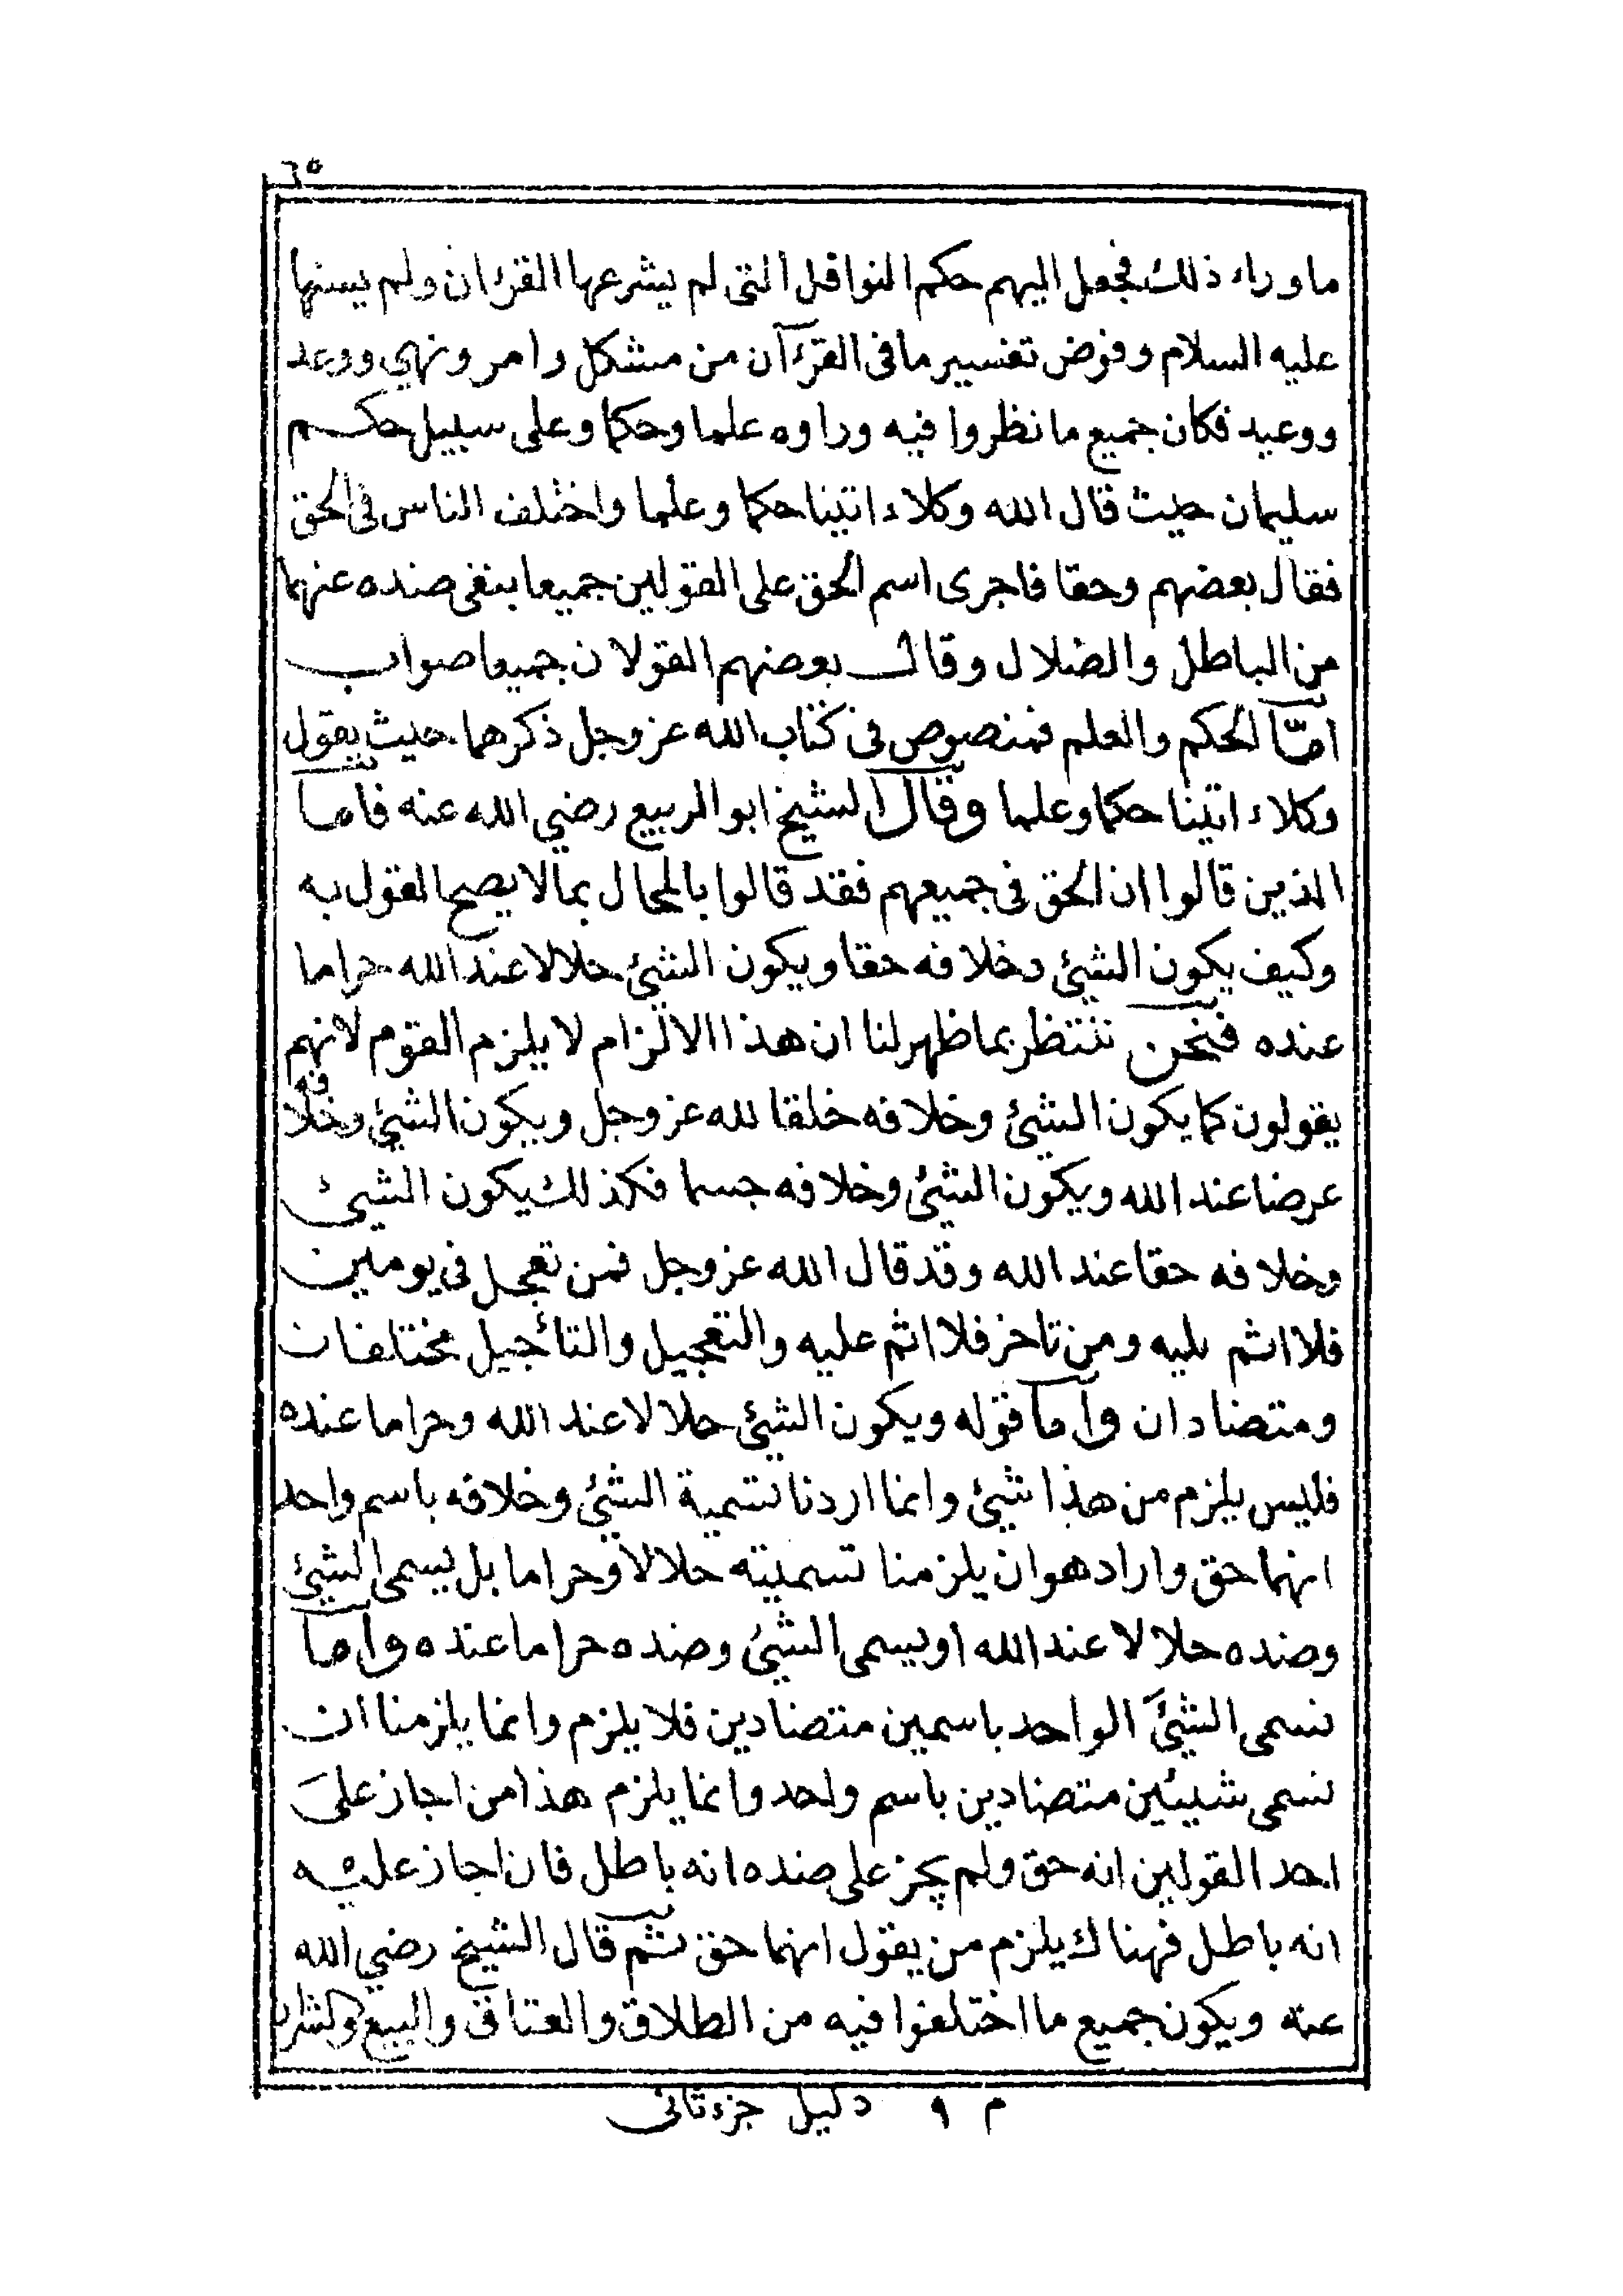 ٦٥
ما وراء ذلك فجعل اليهم حكم النوافل التى لم يشرعها القرءان ولم يسنها
عليه السلام وفوض تفسير ما فى القرءآن من مشكل وامر ونهي ووعد
ووعيد فكان جميع ما نظروا فيه وراوه علما وحكما وعلى سبيل حكم
سليمان حيث قال الله وكلاء اتينا حكما وعلما واختلف الناس فى الحق
فقال بعضهم وحقا فاجرى اسم الحق على القولين جميعا بنفى ضنده عنهما
من الباطل والضلال وقال بعضهم القولان جميعا صواب
امّا الحكم والعلم فمنصوص فى كتاب الله عز وجل ذكرهما حيث يقول
وكلاء اتينا حكما وعلما وقال الشيخ ابو الربيع رضي الله عنه فاما
الذين قالوا ان الحق فى جميعهم فقد قالوا بالمحال بما لا يصح القول به
وكيف يكون الشئ وخلافه حقا ويكون الشئ حلالا عند الله حراما
عنده فنحن ننتظر بما ظهر لنا ان هذا الالزام لا يلزم القوم لانهم
يقولون كما يكون الشئ وخلافه خلقا لله عز وجل ويكون الشئ وخلافه
عرضا عند الله ويكون الشئ وخلافه جسما فكذلك يكون الشئ
وخلافه حقا عند الله وقد قال الله عز وجل فمن تعجل فى يومين
فلا اثم عليه ومن تاخر فلا اثم عليه والتعجيل والتأجيل مختلفان
ومتضادان وأما قوله ويكون الشئ حلالا عند الله وحراما عنده
فليس يلزم من هذا شئ وانما اردنا تسمية الشئ وخلافه باسم واحد
انهما حق واراد هو ان يلزمنا تسميته حلالا وحراما بل يسمى الشئ
وضده حلالا عند الله او يسمى الشئ وضده حراما عنده وأما
نسمى الشئَ الواحد باسمين متضادين فلا يلزم وانما يلزمنا ان
نسمى شيئين متضادين باسم واحد وانما يلزم هذا من اجاز علىَ
احد القولين انه حق ولم يجز على ضده انه باطل فان اجاز عليه
انه باطل فهناك يلزم من يقول انهما حق ثم قال الشيخ رضي الله
عنه ويكون جميع ما اختلفوا فيه من الطلاق والعتاق والبيع والشراء
م ٩ دليل جزء ثانى